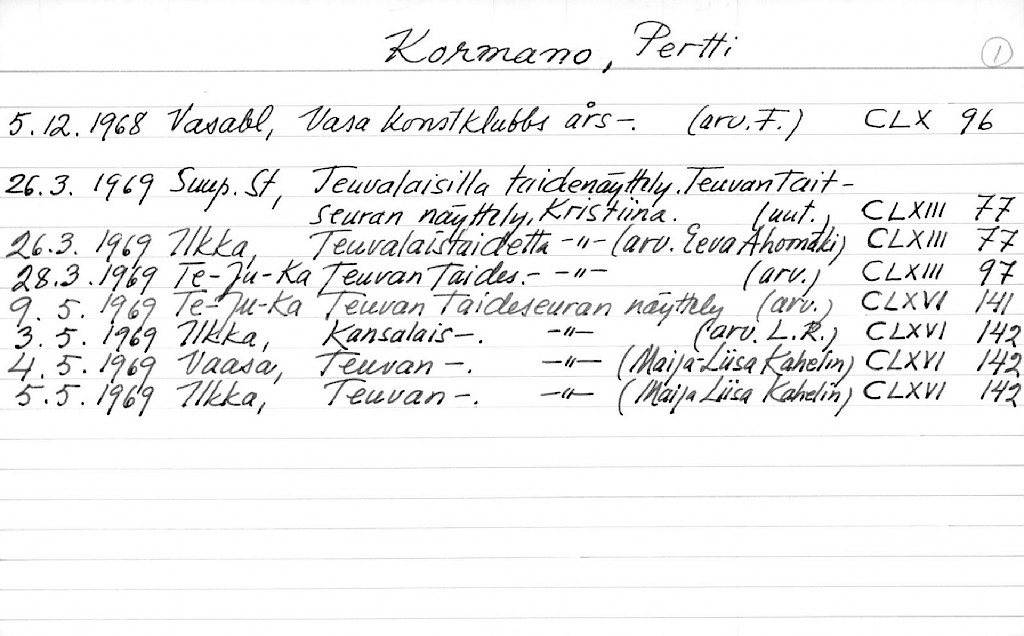 Kormano, Pertti 1
5.12.1968 Vasabl, Vasa Konstklubbs års-. (arv. F.) CLX 96
26.3. 1969 Suup. St, Teuvalaisilla taidenäyttely. Teuvan Tait-
seuran näyttely, Kristiina. (uut.) CLXIII 77
26.3. 1969 Ilkka, Teuvalaistaidetta -"- (arv. Eeva Ahomäki) CLXIII 77
28.3.1969 Te-Ju-Ka Teuvan Taides.- -"- (arv.) CLXIII 97
9. 5. 1969 Te-Ju-Ka Teuvan taideseuran näyttely (arv.) CLXVI 141
3. 5. 1969 Ilkka, Kansalais-. -"- (arv. L.R.) CLXVI 142
4. 5. 1969 Vaasa, Teuvan -. -"- (Maija-Liisa Kahelin) CLXVI 142
5.5. 1969 Ilkka, Teuvan -. -"- (Maija Liisa Kahelin) CLXVI 142